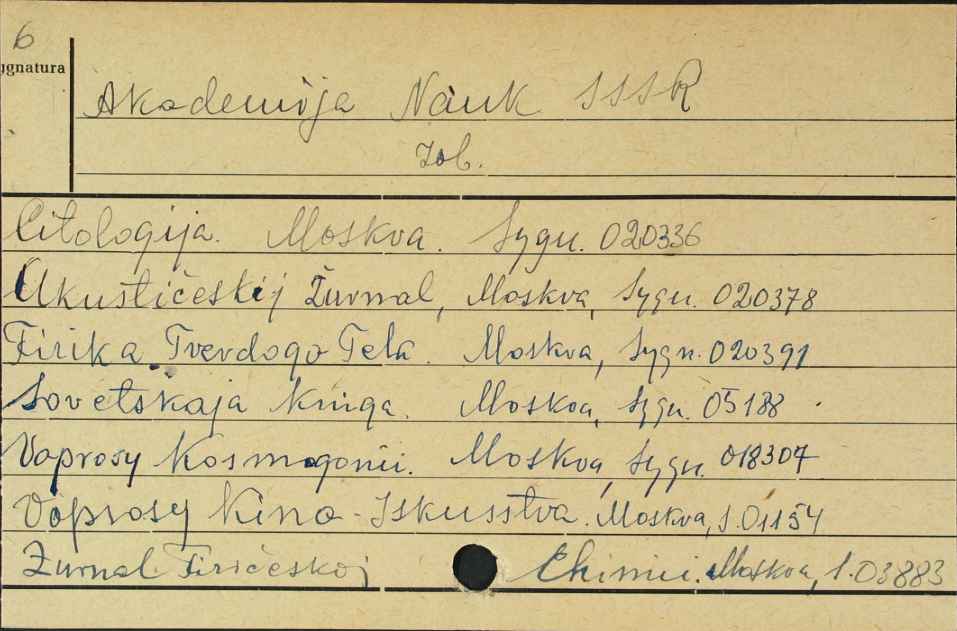 6
ygnatura
Akademija Nauk SSSR
Zob.
Citologija. Moskva. Sygn. 020336
Akustičeskij Žurnal, Moskva, Sygn. 020378
Fizika Tverdogo Tela. Moskva, Sygn. 020391
Sovetskaja kniga. Moskva, Sygn. 05188
Voprosy Kosmogonii. Moskva, Sygn. 018307
Voprosy Kino-Iskusstva. Moskva, S.01154
Žurnal Fizičeskoj Chimii. Moskva, S.03883